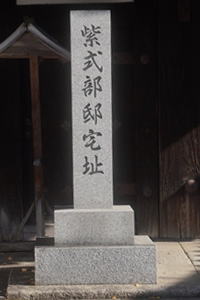 紫式部邸宅址